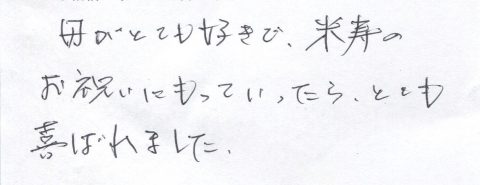 母がとても好きで、米寿の
お祝いにもっていったら、とても
喜ばれました。